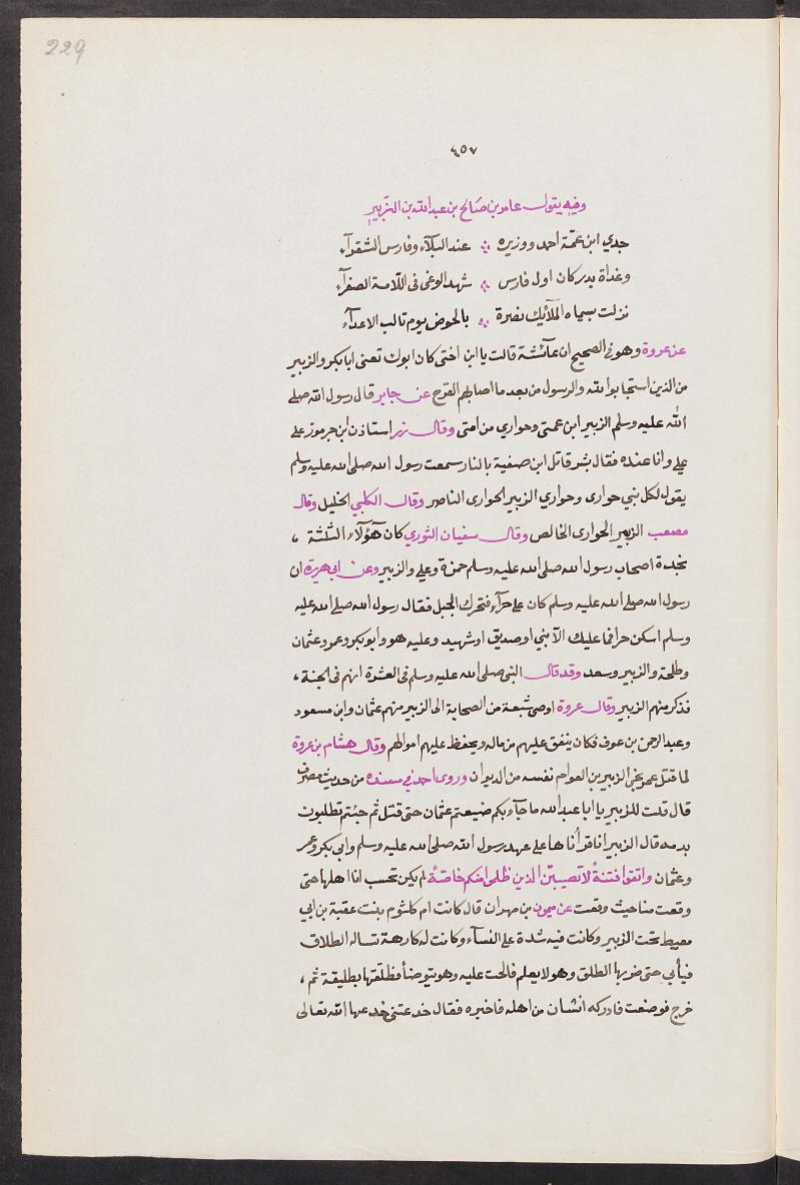 229
٤٥٧
وفيه يقول عامر بن صالح بن عبد الله بن الزبير
جدي ابن عمّة احمد ووزيره ∴ عند البلآء وفارس الشقرآء
وغداة بدر كان اول فارس ∴ شهد الوغى فى اللّامة الصفرآء
نزلت بسيماه الملآئك نصرة ∴ بالحوض يوم تالب الاعدآء
عن عروة وهو فى الصحيح ان عآئشة قالت يا ابن اختى كان ابوك تعنى ابا بكر والزبير
من الذين استجابوا لله والرسول من بعد ما اصابهم القرح عن جابر قال رسول الله صلى
الله عليه وسلم الزبير ابن عمتى وحواري من امتى وقال زر استاذن ابن جرموز على
علي وانا عنده فقال بشر قاتل ابن صفية بالنار سمعت رسول الله صلى الله عليه وسلم
يقول لكل نبي حوارى وحواري الزبير الحوارى الناصر وقال الكلبي الخليل وقال
مصعب الزبير الحوارى الخالص وقال سفيان الثوري كان هؤلآء الثلثة ،
نجدة اصحاب رسول الله صلى الله عليه وسلم حمزة وعلي والزبير وعن ابي هريرة ان
رسول الله صلى الله عليه وسلم كان على حرآء فتحرك الجبل فقال رسول الله صلى الله عليه
وسلم اسكن حرا فما عليك الا نبي او صديق او شهيد وعليه هو وابو بكر وعمر وعثمان
وطلحة والزبير وسعد وقد قال النبى صلى الله عليه وسلم فى العشرة انهم فى الجنة ،
فذكر منهم الزبير وقال عروة اوصى سبعة من الصحابة الى الزبير منهم عثمان وابن مسعود
وعبد الرحمن بن عوف فكان ينفق عليهم من ماله ويحفظ عليهم اموالهم وقال هشام بن عروة
لما قتل عمر محى الزبير بن العوام نفسه من الديوان وروى احمد في مسنده من حديث مطرف
قال قلت للزبير يا ابا عبد الله ما جآء بكم ضيعتم عثمان حتى قتل ثم جئتم تطلبون
بدمه قال الزبير انا قرأناها على عهد رسول الله صلى الله عليه وسلم وابي بكر وعمر
وعثمان واتقوا فتنةً لا تصيبنّ الذين ظلموا منكم خاصّةً لم يكن نحسب انا اهلها حتى
وقعت منا حيث وقعت عن ميمون بن مهران قال كانت ام كلثوم بنت عقبة بن ابي
معيط تحت الزبير وكانت فيه شدة على النسآء وكانت له كارهة تساله الطلاق
فيأبي حتى ضربها الطلق وهو لا يعلم فالحت عليه وهو يتوضأ فطلّقها بطليقة ثم ،
خرج فوضعت فادركه انسان من اهله فاخبره فقال خدعتنى خدعها الله تعالى